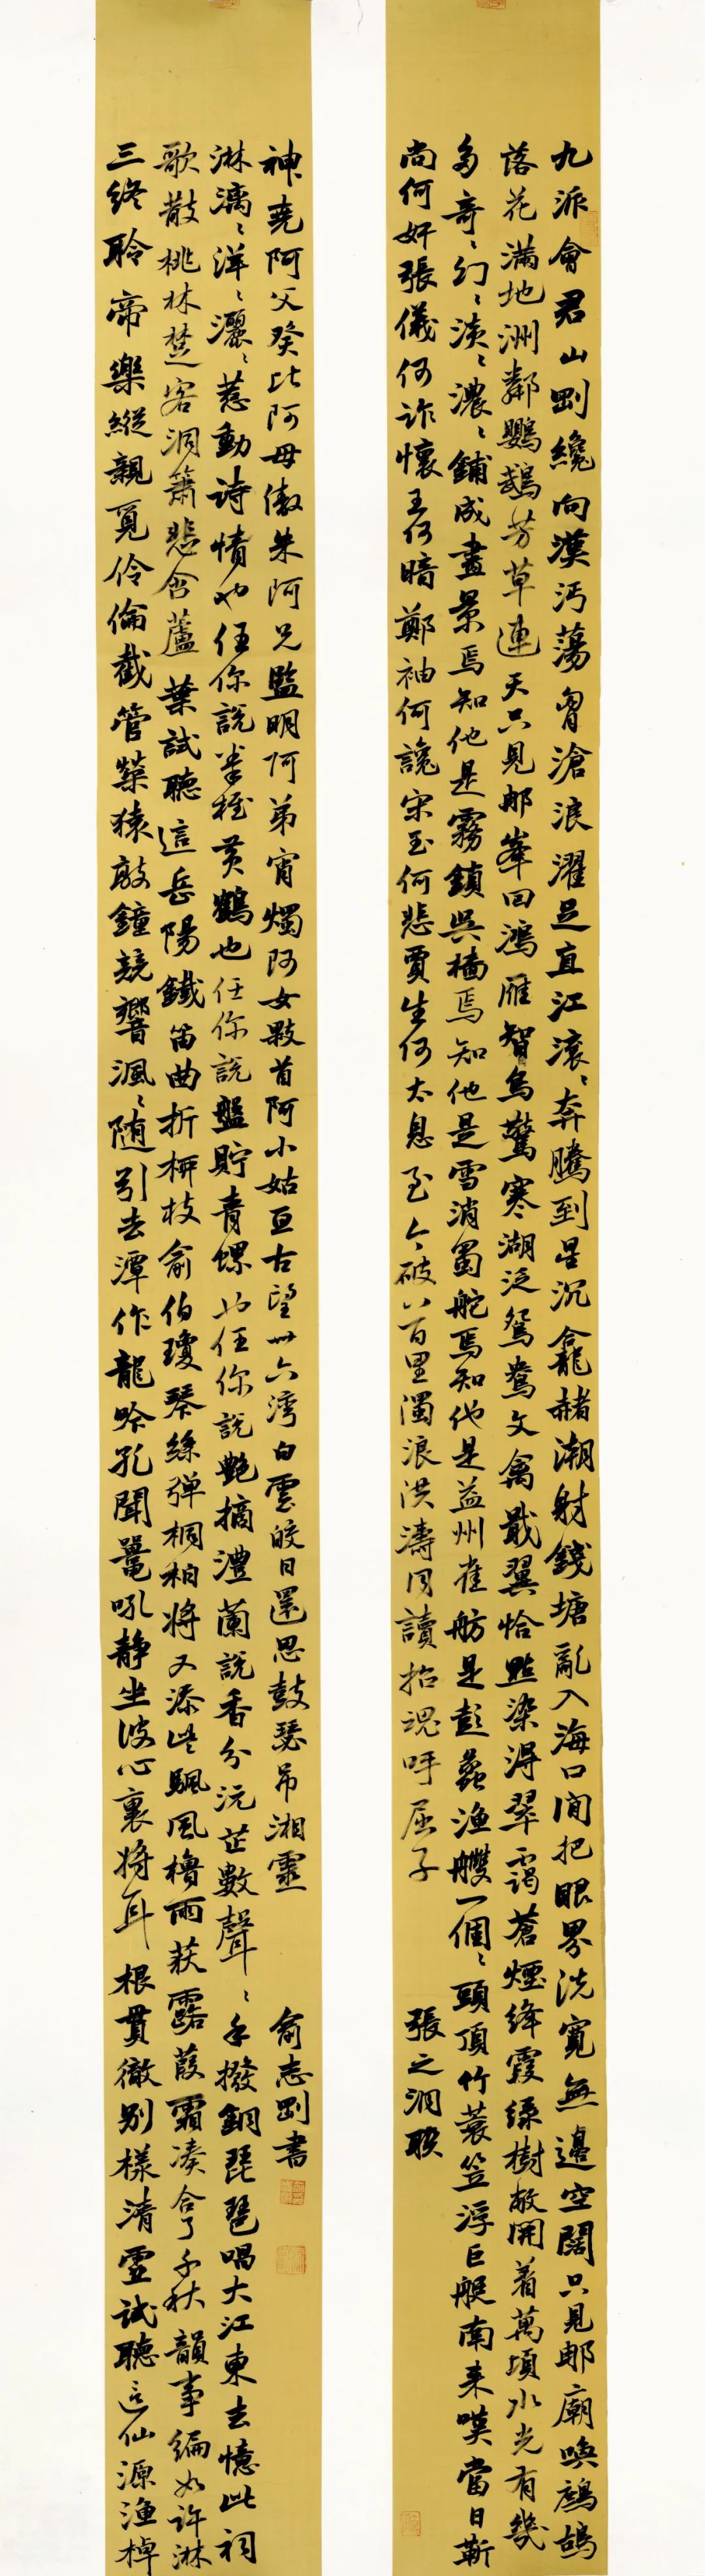 九派會君山剛纔向漢沔蕩胷滄浪濯足直江滾々奔騰到星沉龕赭潮射錢塘亂入海口間把眼界洗寬無邊空闊只見那廟喚鷓鴣
落花滿地洲鄰鸚鵡芳草連天只見那峯回鴻雁智鳥驚寒湖泛鴛鴦文禽戢翼恰點染得翠靄蒼煙絳霞綠樹敞開着萬頃水光有幾
多奇々幻々淡々濃々鋪成畫景焉知他是霧鎖吳檣焉知他是雪消蜀舵焉知他是益州雀舫是彭蠡漁艭一個々頭頂竹蓑笠浮巨艇南来嘆當日靳
尚何奸張儀何詐懷王何暗鄭袖何讒宋玉何悲賈生何太息至今破八百里濁浪洪濤同讀招魂呼屈子
張之洞联
三終聆帝樂縱親覓伶倫截管榮猿敲鐘競響渢々随引去潭作龍吟孔聞鼉吼靜坐波心裏將耳根貫徹別樣清虛試聽這仙源漁棹
歌散桃林楚客洞簫悲含蘆葉試聽這岳陽鐵笛曲折柳枝俞伯瓊琴絲彈桐柏將又添些颿風櫓雨荻露葭霜湊合了千秋韻事編如許淋
淋漓々洋々灑々惹動詩情也任你說拳椎黃鶴也任你說盤貯青螺也任你說艷摘澧蘭說香分沅芷數聲々手撥銅琵琶唱大江東去憶此祠
神堯阿父癸比阿母傲朱阿兄監明阿弟宵燭阿女敤首阿小姑亘古望卅六灣白雲皎日還思鼓瑟吊湘靈
俞志剛書